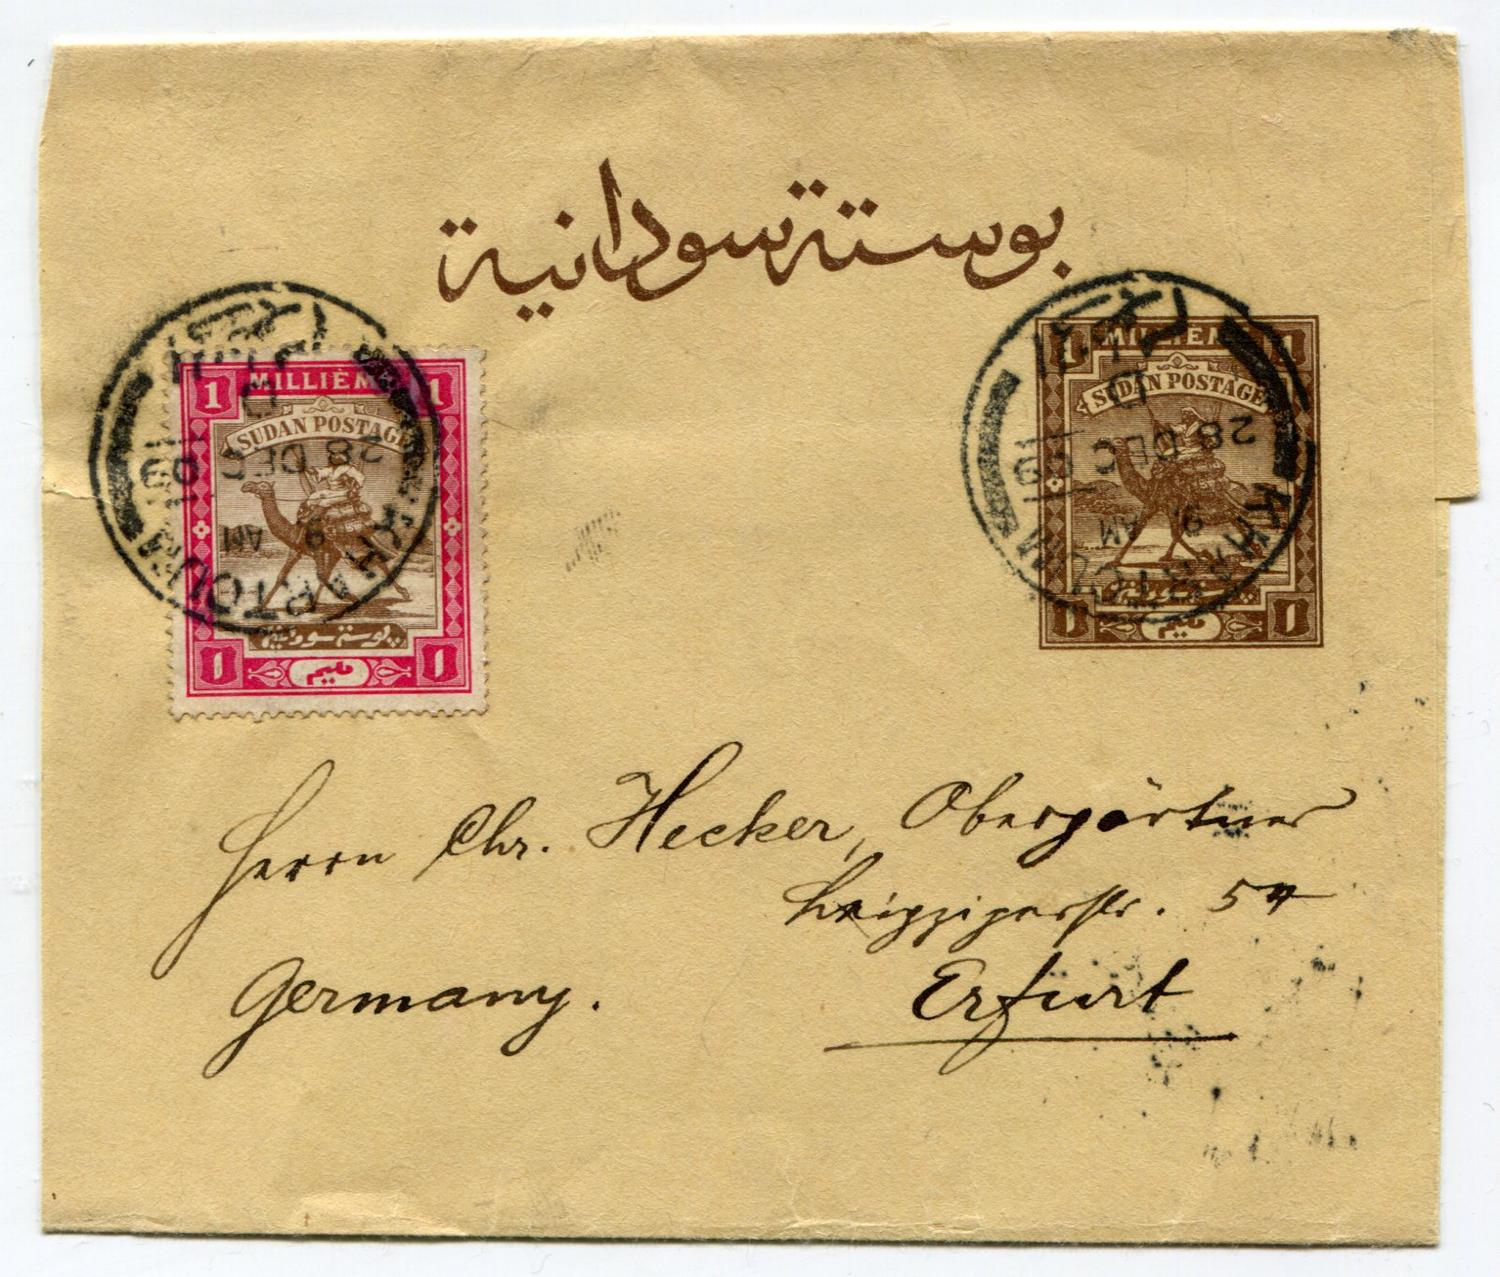 بوستة سودانية
1 MILLIÈME 1
SUDAN POSTAGE
بوستة سودانية
1 مليم 1
KHARTOUM
28 DEC
9 AM
1 MILLIÈME 1
SUDAN POSTAGE
1 مليم 1
KHARTOUM
28 DEC
9 AM
Herrn Chr. Hecker, Obergärtner
Leipzigerstr.
Germany. Erfurt